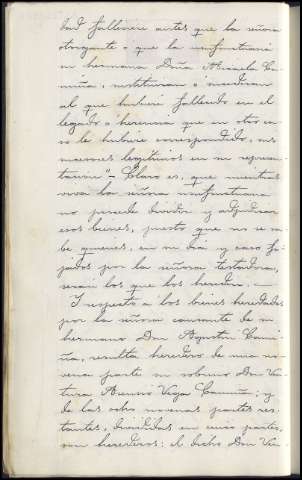 dad falleciere antes que la señora
otorgante o que la usufructuaria
su hermana Doña Micaela Ca-
miña, instituian o mandaron
al que hubiere fallecido en el
legado o herencia que en otro ca-
so le hubiere correspondido, sus
sucesores legítimos en su represen-
tación".- Claro es, que mientras
viva la señora usufructuaria
no procede dividir y adjudicar
esos bienes, puesto que no se sa-
be quienes, en su dia y caso fi-
jados por la señora testadora,
serán los que los hereden.
Y respecto a los bienes heredados
por la señora causante de su
hermano Don Agustin Cami-
ña, resulta heredero de una no-
vena parte su sobrino Don Ven-
tura Asensio Vega Camiña; y
de las ocho novenas partes res-
tantes, divididas en cinco partes,
son herederos: el dicho Don Ven-